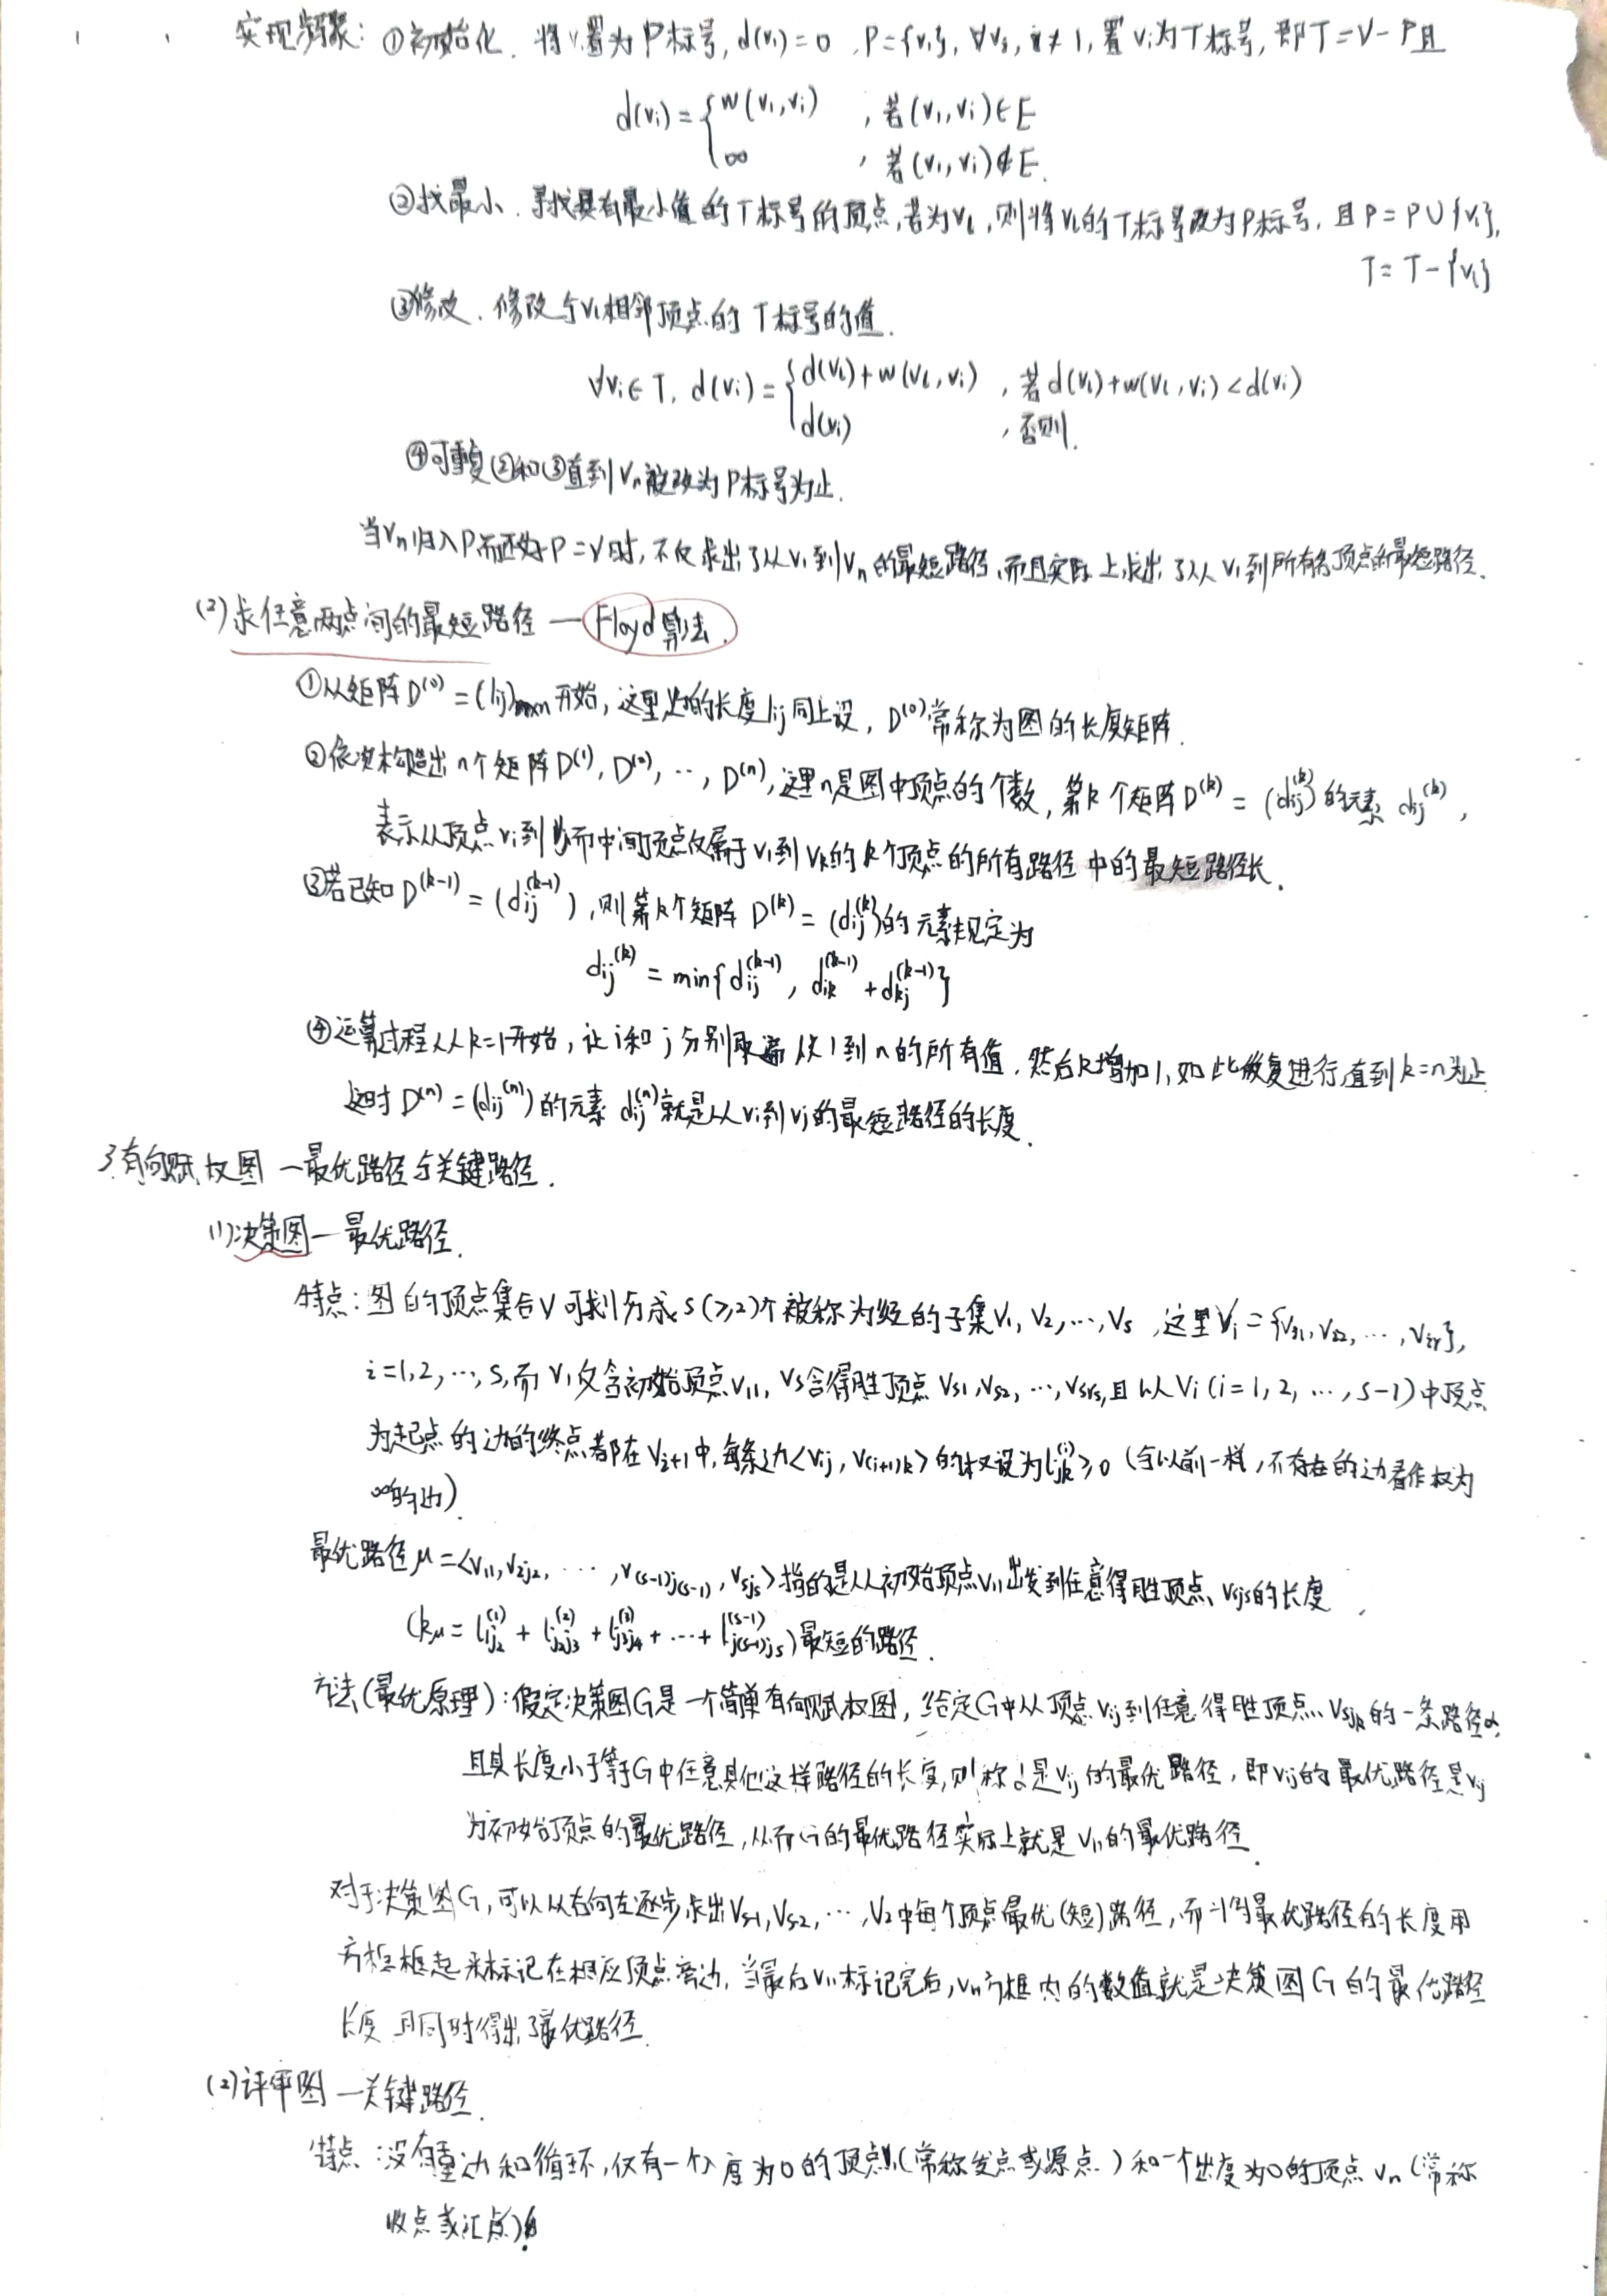 实现步骤：①初始化．将v₁置为P标号，d(v₁)=0，P={v₁}，∀vᵢ，i≠1，置vᵢ为T标号，即T=V-P且
d(vᵢ)={w(v₁,vᵢ) ，若(v₁,vᵢ)∈E
∞ ，若(v₁,vᵢ)∉E.
②找最小．寻找具有最小值的T标号的顶点，若为vₗ，则将vₗ的T标号改为P标号，且P=P∪{vₗ}，
T=T-{vₗ}
③修改．修改与vₗ相邻顶点的T标号的值．
∀vᵢ∈T，d(vᵢ)={d(vₗ)+w(vₗ,vᵢ) ，若d(vₗ)+w(vₗ,vᵢ)<d(vᵢ)
d(vᵢ) ，否则．
④可重复②和③直到vₙ被改为P标号为止．
当vₙ归入P而正好P=V时，不仅求出了从v₁到vₙ的最短路径，而且实际上求出了从v₁到所有各顶点的最短路径．
(2)求任意两点间的最短路径—Floyd算法．
①从矩阵D⁽⁰⁾=(lij)mxn开始，这里边的长度lij同上设，D⁽⁰⁾常称为图的长度矩阵．
②依次构造出n个矩阵D⁽¹⁾，D⁽²⁾，…，D⁽ⁿ⁾，这里n是图中顶点的个数，第k个矩阵D⁽ᵏ⁾=(dij⁽ᵏ⁾)的元素dij⁽ᵏ⁾，
表示从顶点vᵢ到vⱼ而中间顶点仅属于v₁到vₖ的k个顶点的所有路径中的最短路径长．
③若已知D⁽ᵏ⁻¹⁾=(dij⁽ᵏ⁻¹⁾)，则第k个矩阵D⁽ᵏ⁾=(dij⁽ᵏ⁾)的元素规定为
dij⁽ᵏ⁾=min{dij⁽ᵏ⁻¹⁾，dik⁽ᵏ⁻¹⁾+dkj⁽ᵏ⁻¹⁾}
④运算过程从k=1开始，让i和j分别取遍从1到n的所有值，然后k增加1，如此做复进行，直到k=n为止
这时D⁽ⁿ⁾=(dij⁽ⁿ⁾)的元素dij⁽ⁿ⁾就是从vᵢ到vⱼ的最短路径的长度．
3.有向赋权图—最优路径与关键路径．
(1)决策图—最优路径．
特点：图的顶点集合V可划分成s(≥2)个被称为级的子集V₁，V₂，…，Vs，这里Vᵢ={vs1，vs2，…，vir}，
i=1,2,…,s，而V₁仅含初始顶点v11，Vs含得胜顶点vs1,vs2,…,vsrs，且以Vᵢ(i=1,2,…,s-1)中顶点
为起点的边的终点都在Vi+1中，每条边<vij,v(i+1)k>的权设为ljk⁽ⁱ⁾≥0(与以前一样，不存在的边看作权为
∞的边)．
最优路径μ=<v11,v2j2,……,v(s-1)j(s-1),vsjs>指的是从初始顶点v11出发到任意得胜顶点vsjs的长度
(kμ=l1j2⁽¹⁾+lj2j3⁽²⁾+lj3j4⁽³⁾+…+lj(s-1)js⁽ˢ⁻¹⁾)最短的路径．
方法(最优原理)：假定决策图G是一个简单有向赋权图，给定G中从顶点vij到任意得胜顶点vsjk的一条路径α，
且其长度小于等于G中任意其他这样路径的长度，则称α是vij的最优路径，即vij的最优路径是vij
为初始顶点的最优路径，从而G的最优路径实际上就是v11的最优路径．
对于决策图G，可以从右向左逐步求出Vs-1,Vs-2,…,V2中每个顶点最优(短)路径，而将最优路径的长度用
方框框起来标记在相应顶点旁边，当最后v11标记完后，v11方框内的数值就是决策图G的最优路径
长度 且同时得出了最优路径．
(2)评审图—关键路径．
特点：没有重边和循环，仅有一个入度为0的顶点v₁(常称发点或源点)和一个出度为0的顶点vₙ(常称
收点或汇点)．